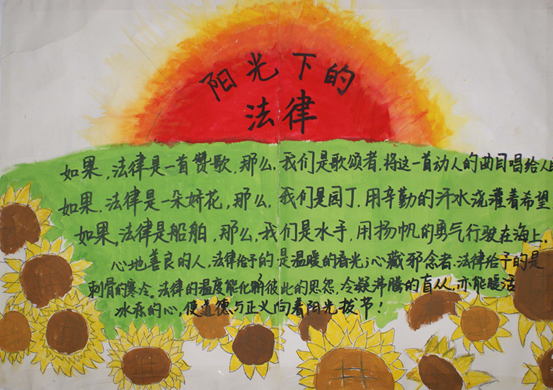 阳光下的
法律
如果,法律是一首赞歌,那么,我们是歌颂者,将这一首动人的曲目唱给人
如果,法律是一朵娇花,那么,我们是园丁,用辛勤的汗水浇灌着希望
如果,法律是船舶,那么,我们是水手,用扬帆的勇气行驶在海上.
心地善良的人,法律给予的是温暖的春光;心藏邪念者,法律给予的是
刺骨的寒冷。法律的温度能化解彼此的恩怨,冷凝沸腾的盲从,亦能暖活
冰冷的心,使道德与正义向着阳光拔节!